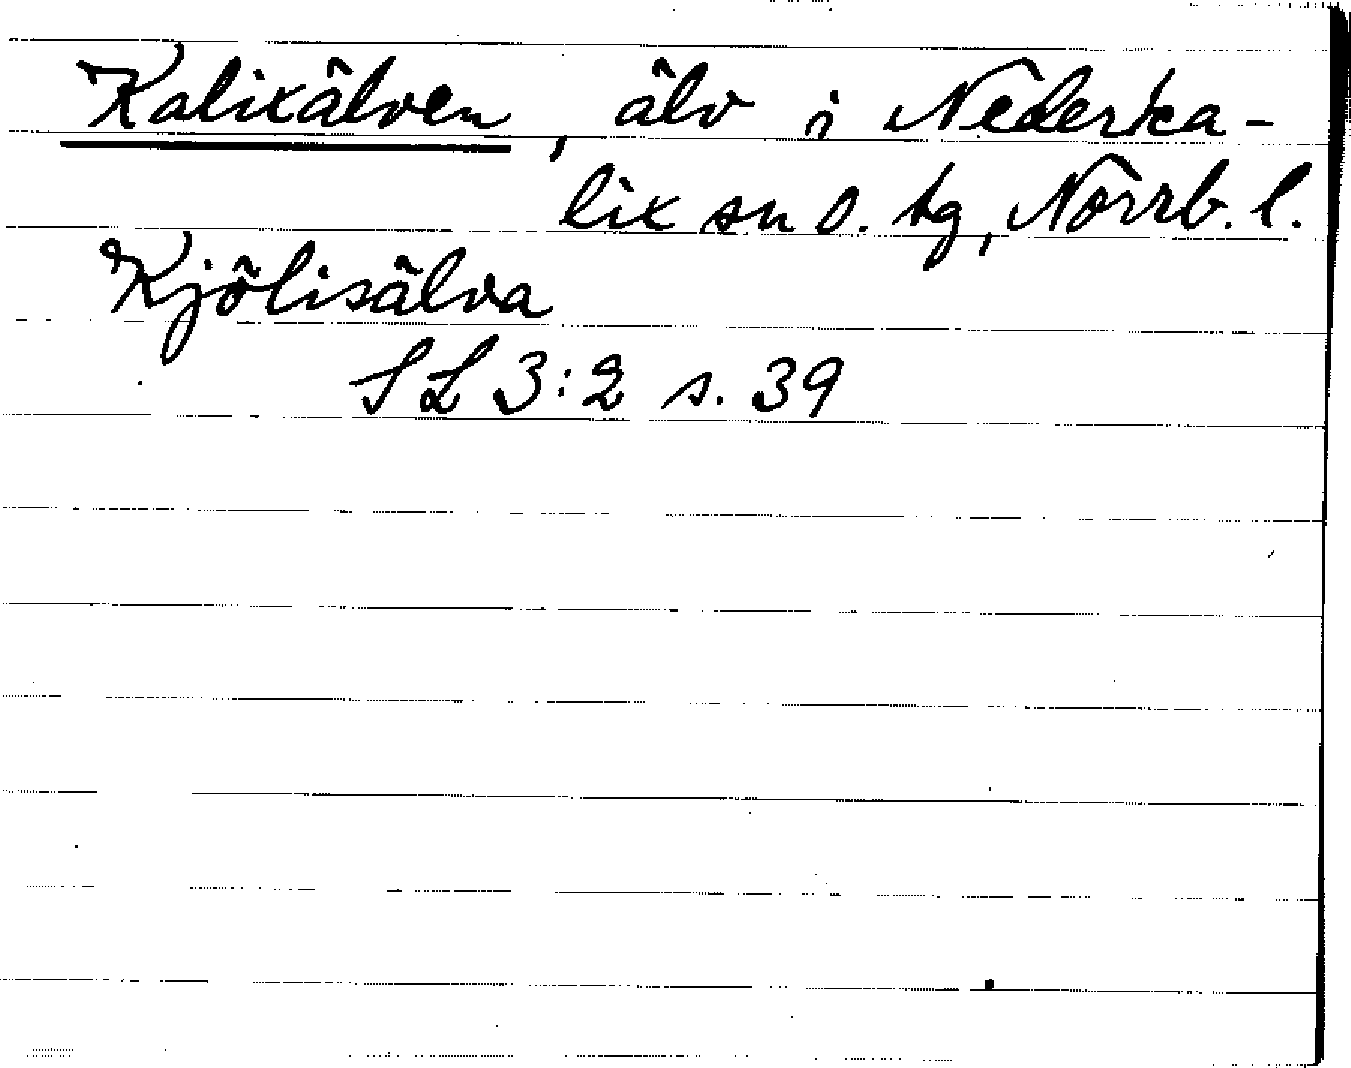 Kalixälven, älv i Nederka-
lix sn o. tg, Norrb. l.
Kjölisälva
SL 3:2 s. 39